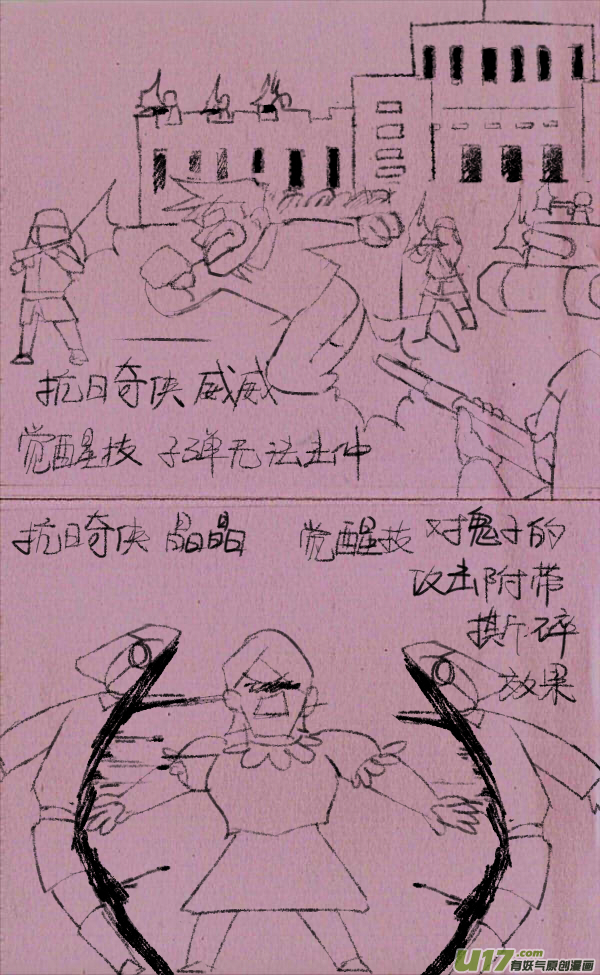 抗日奇侠 威威
觉醒技 子弹无法击中
抗日奇侠 晶晶
觉醒技 对鬼子的
攻击附带
撕碎
效果
U17.com
有妖气原创漫画